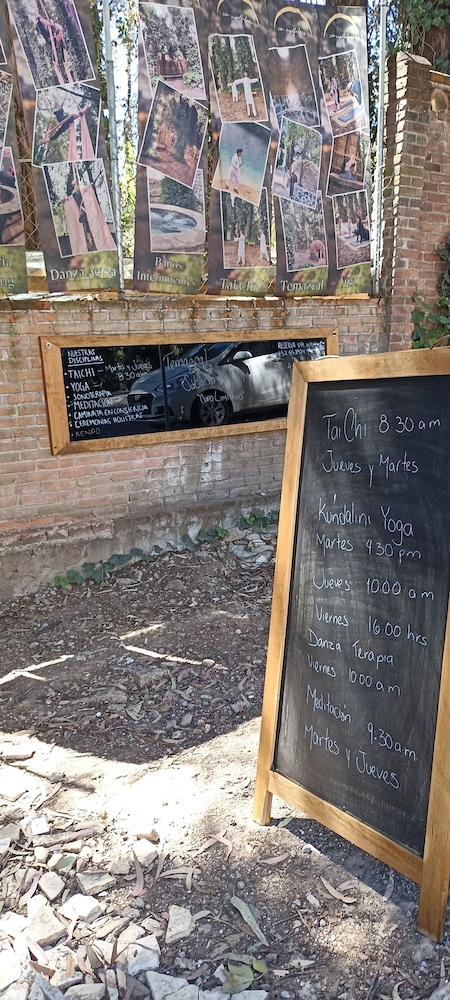 Danza Aerea
Baños
Intermitentes
Tai Chi
Temazcal
Yoga
NUESTRAS
DISCIPLINAS
TAICHI Martes y Jueves
8:30 am
• YOGA
• SONOTERAPIA
• MEDITACIÓN
• CAMINATA EN CONSCIENCIA
• CEREMONIAS HOLISTICAS
• KENPO
Temazcal
Cupo Limitado
Tai Chi 8 30 am
Jueves y Martes
Kúndalini Yoga
Martes 4 30 pm
Jueves 10:00 am
Viernes 16:00 hrs
Danza Terapia
Viernes 10:00 am
Meditación 9:30 am
Martes y Jueves